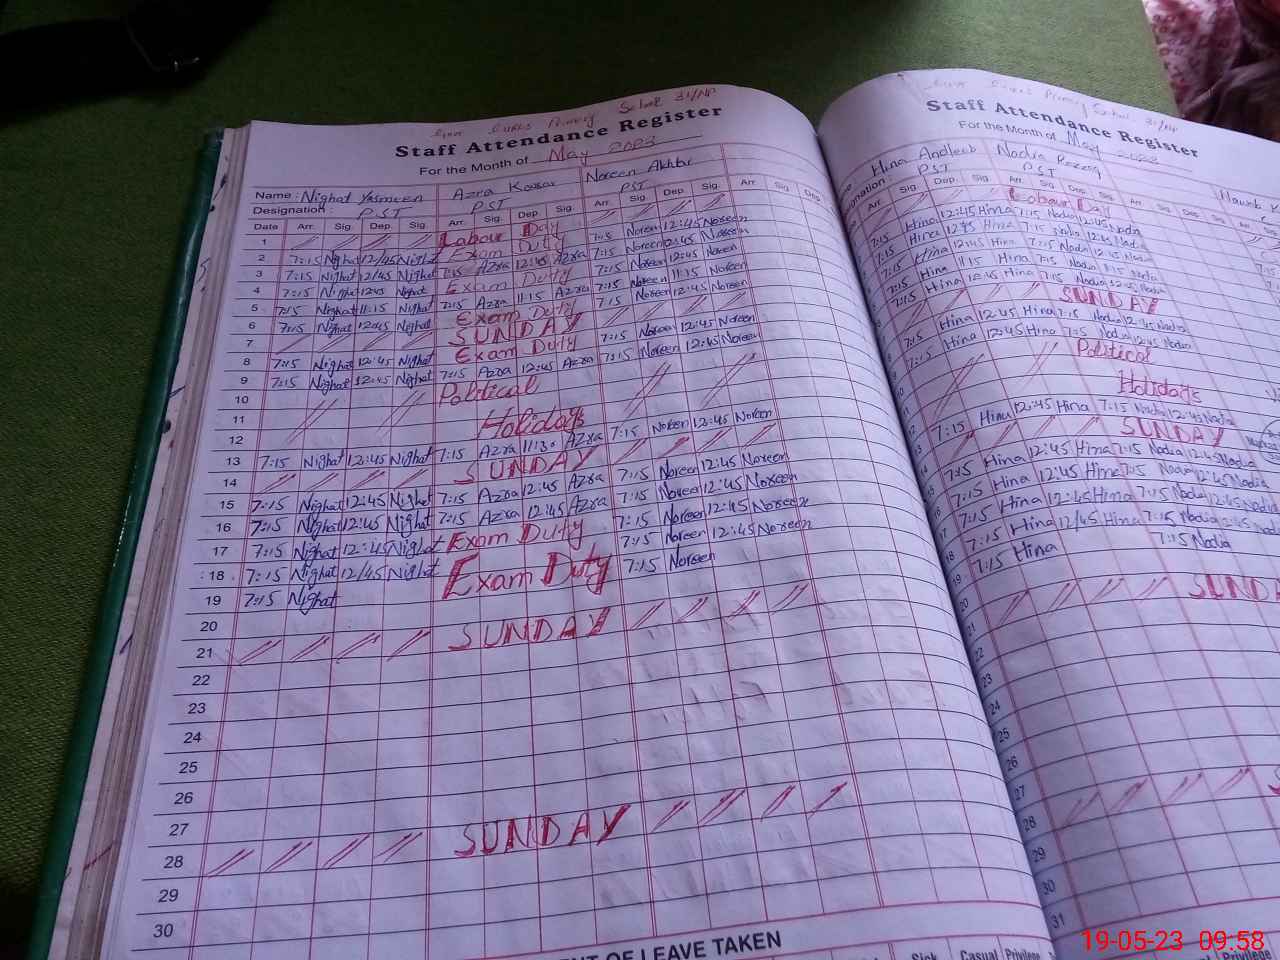 Girls Primary School 31/NP
Staff Attendance Register
For the Month of May 2023
Name : Nighat Yasmeen Azra Kosar Noreen Akhtar
Designation : PST PST PST
Date Arr. Sig. Dep. Sig. Arr. Sig. Dep. Sig. Arr. Sig. Dep. Sig. Arr. Sig. Dep.
1 Labour Day
2 7:15 Nighat 12/45 Nighat Exam Duty 7:15 Noreen 12:45 Noreen
3 7:15 Nighat 12/45 Nighat 7:15 Azra 12:45 Azra 7:15 Noreen 12:45 Noreen
4 7:15 Nighat 12:45 Nighat Exam Duty 7:15 Noreen 12:45 Noreen
5 7:15 Nighat 11:15 Nighat 7:15 Azra 11:15 Azra 7:15 Noreen 11:15 Noreen
6 7:15 Nighat 12:45 Nighat Exam Duty 7:15 Noreen 12:45 Noreen
7 SUNDAY
8 7:15 Nighat 12:45 Nighat Exam Duty 7:15 Noreen 12:45 Noreen
9 7:15 Nighat 12:45 Nighat 7:15 Azra 12:45 Azra 7:15 Noreen 12:45 Noreen
10 Political
11
12 Holidays
13 7:15 Nighat 12:45 Nighat 7:15 Azra 11:30 Azra 7:15 Noreen 12:45 Noreen
14 SUNDAY
15 7:15 Nighat 12:45 Nighat 7:15 Azra 12:45 Azra 7:15 Noreen 12:45 Noreen
16 7:15 Nighat 12:45 Nighat 7:15 Azra 12:45 Azra 7:15 Noreen 12:45 Noreen
17 7:15 Nighat 12:45 Nighat Exam Duty 7:15 Noreen 12:45 Noreen
18 7:15 Nighat 12/45 Nighat Exam Duty 7:15 Noreen 12:45 Noreen
19 7:15 Nighat 7:15 Noreen
20
21 SUNDAY
22
23
24
25
26
27
28 SUNDAY
29
30
OF LEAVE TAKEN
Sick Casual Privilege
Girls Primary School 31/NP
Staff Attendance Register
For the Month of May 2023
Hina Andleeb Nadia
PST PST
Arr. Sig. Dep. Sig. Arr. Sig. Dep. Sig. Arr. Sig. Dep. Sig.
Labour Day
7:15 Hina 12:45 Hina 7:15 Nadia 12:45 Nadia
7:15 Hina 12:45 Hina 7:15 Nadia 12:45 Nadia
7:15 Hina 12:45 Hina 7:15 Nadia 12:45 Nadia
7:15 Hina 11:15 Hina 7:15 Nadia 11:15 Nadia
7:15 Hina 12:45 Hina 7:15 Nadia 12:45 Nadia
SUNDAY
7:15 Hina 12:45 Hina 7:15 Nadia 12:45 Nadia
7:15 Hina 12:45 Hina 7:15 Nadia 12:45 Nadia
Political
Holidays
7:15 Hina 12:45 Hina 7:15 Nadia 12:45 Nadia
SUNDAY
7:15 Hina 12:45 Hina 7:15 Nadia 12:45 Nadia
7:15 Hina 12:45 Hina 7:15 Nadia 12:45 Nadia
7:15 Hina 12:45 Hina 7:15 Nadia 12:45 Nadia
7:15 Hina 12/45 Hina 7:15 Nadia 12:45 Nadia
19 7:15 Hina 7:15 Nadia
20
21 SUNDA
22
23
24
25
26
27
28
29
30
31
Privilege
19-05-23 09:58